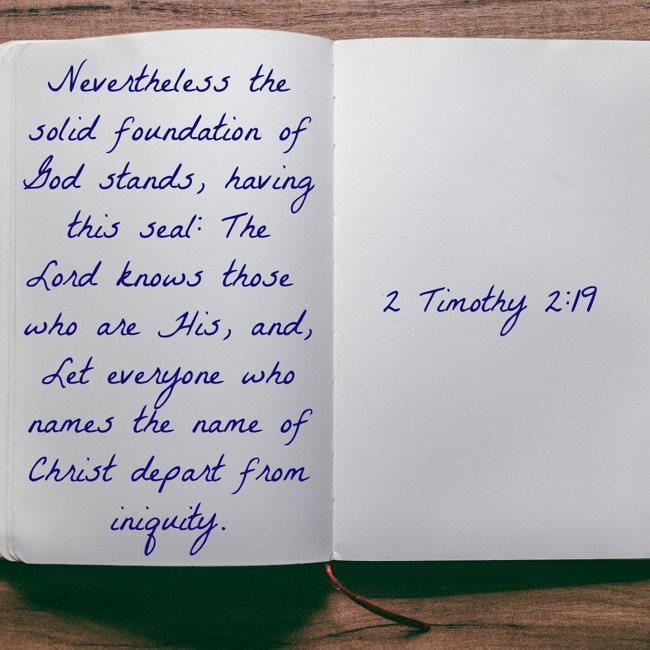 Nevertheless the
solid foundation of
God stands, having
this seal: The
Lord knows those
who are His, and,
Let everyone who
names the name of
Christ depart from
iniquity.
2 Timothy 2:19